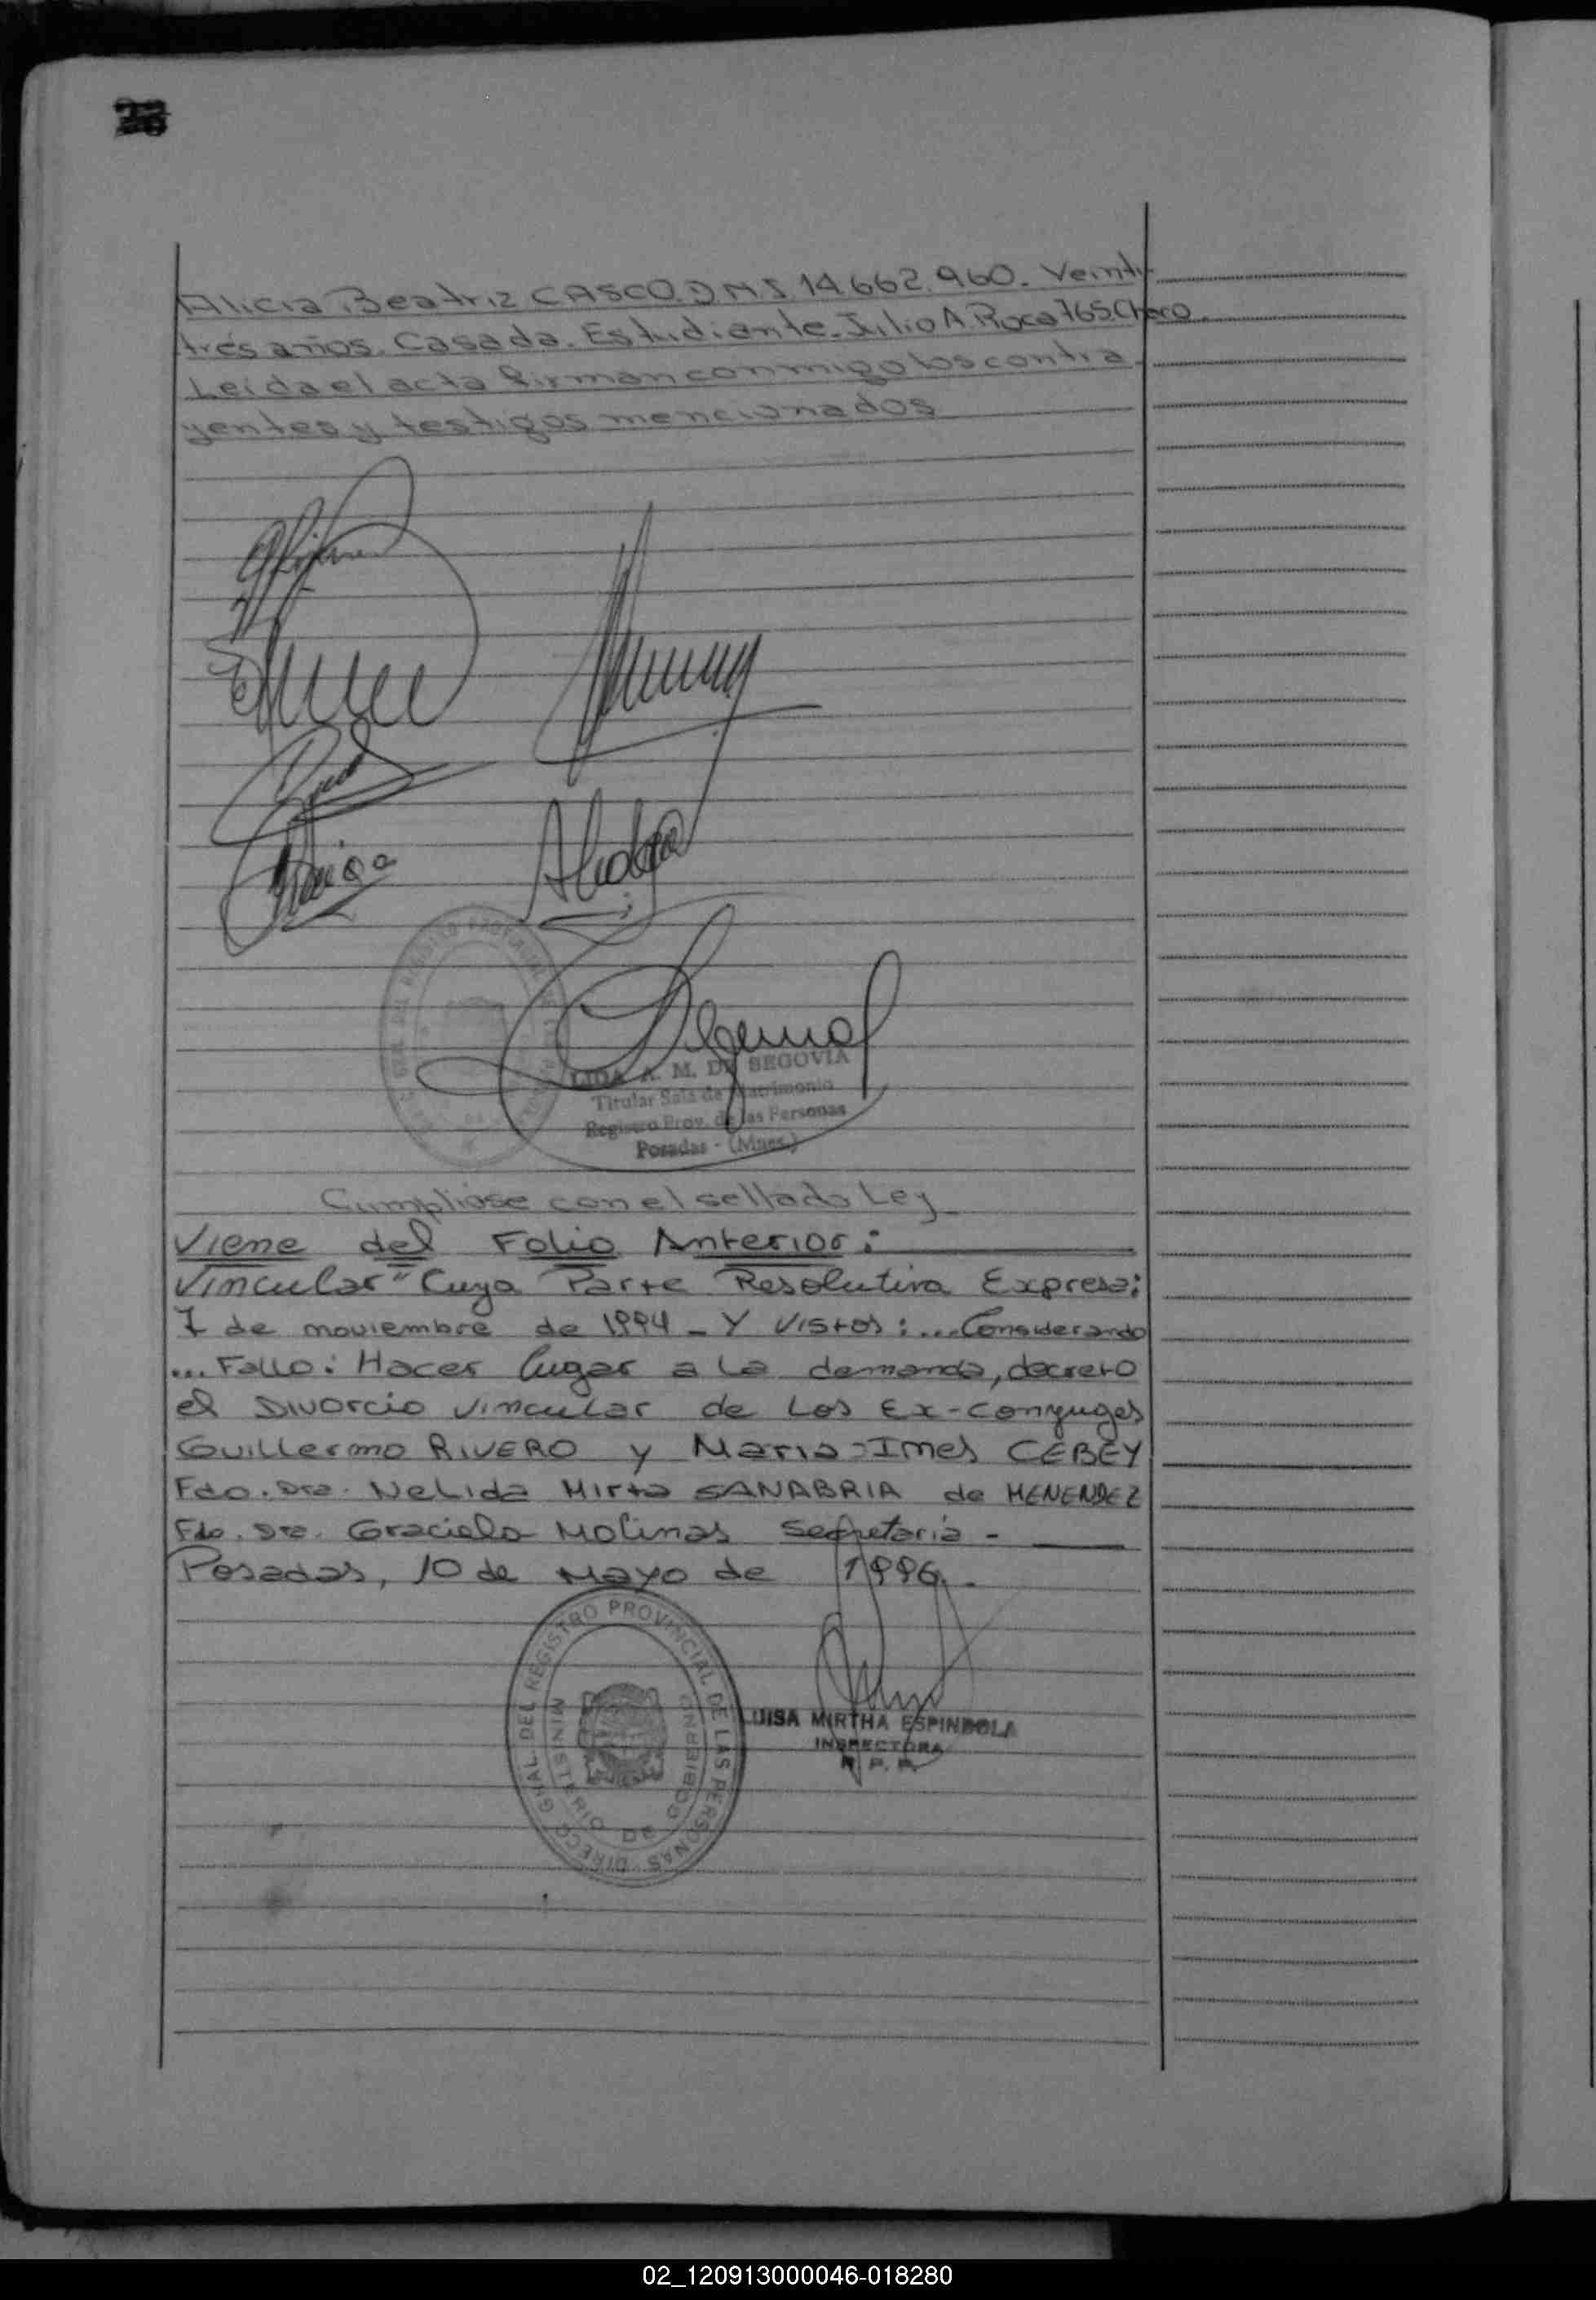 Alicia Beatriz CASCO. D.N.I. 14.662.960. Veinti-
trés años. Casada. Estudiante. Julio A. Roca 765. Chaco.
Leída el acta firman conmigo los contra-
yentes y testigos mencionados
LIDA A. M. DE SEGOVIA
Titular Sala de Matrimonio
Registro Prov. de las Personas
Posadas - (Mnes.)
Cumpliose con el sellado Ley
Viene del Folio Anterior:
Vincular" Cuya Parte Resolutiva Expresa:
7 de noviembre de 1994 - Y Vistos: ... Considerando
... Fallo: Hacer lugar a la demanda, decreto
el Divorcio Vincular de Los Ex-conyuges
Guillermo RIVERO y Maria Ines CEBEY
Fdo. Dra. Nelida Mirta SANABRIA de MENENDEZ
Fdo. Dra. Graciela Molinas Secretaria -
Posadas, 10 de Mayo de 1996.
DIRECC. GRAL. DEL REGISTRO PROVINCIAL DE LAS PERSONAS
MINISTERIO DE GOBIERNO
LUISA MIRTHA ESPINDOLA
INSPECTORA
R. P. P.
02_120913000046-018280